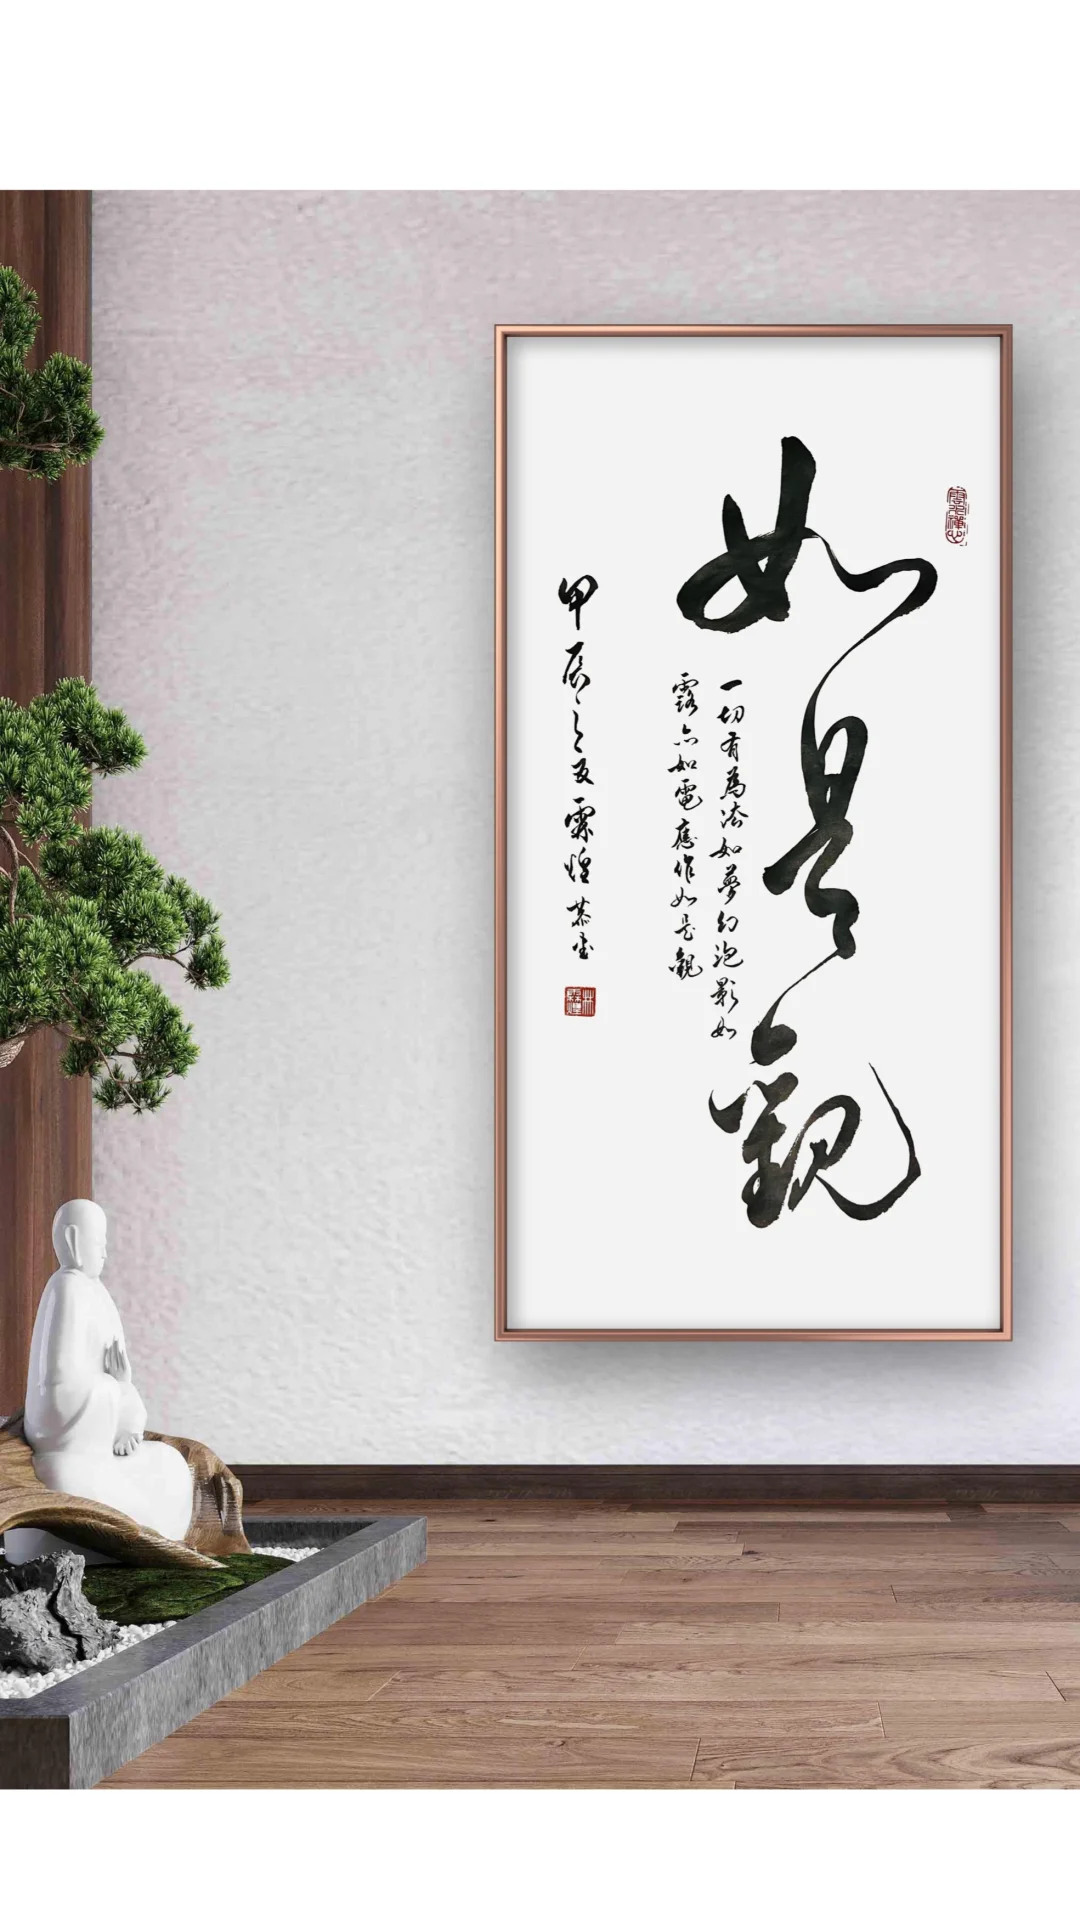 如是觀
一切有為法如夢幻泡影如
露亦如電應作如是觀
甲辰之夏霖煌恭書
林霖煌